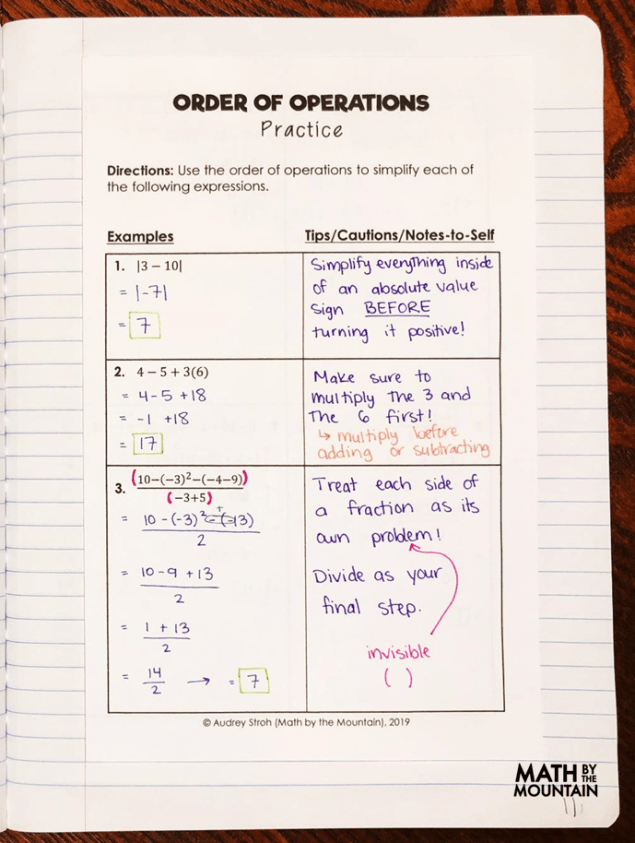 ORDER OF OPERATIONS
Practice
Directions: Use the order of operations to simplify each of
the following expressions.
Examples
Tips/Cautions/Notes-to-Self
1. |3 − 10|
= |-7|
= 7
Simplify everything inside
of an absolute value
sign BEFORE
turning it positive!
2. 4 − 5 + 3(6)
= 4-5 +18
= -1 +18
= 17
Make sure to
multiply the 3 and
the 6 first!
↳ multiply before
adding or subtracting
3. (10−(−3)²−(−4−9))
(−3+5)
= 10 -(-3)² -(-13)
+
2
= 10-9 +13
2
= 1 + 13
2
= 14
2
→ = 7
Treat each side of
a fraction as its
own problem!
Divide as your
final step.
invisible
( )
© Audrey Stroh (Math by the Mountain), 2019
MATH BY THE
MOUNTAIN